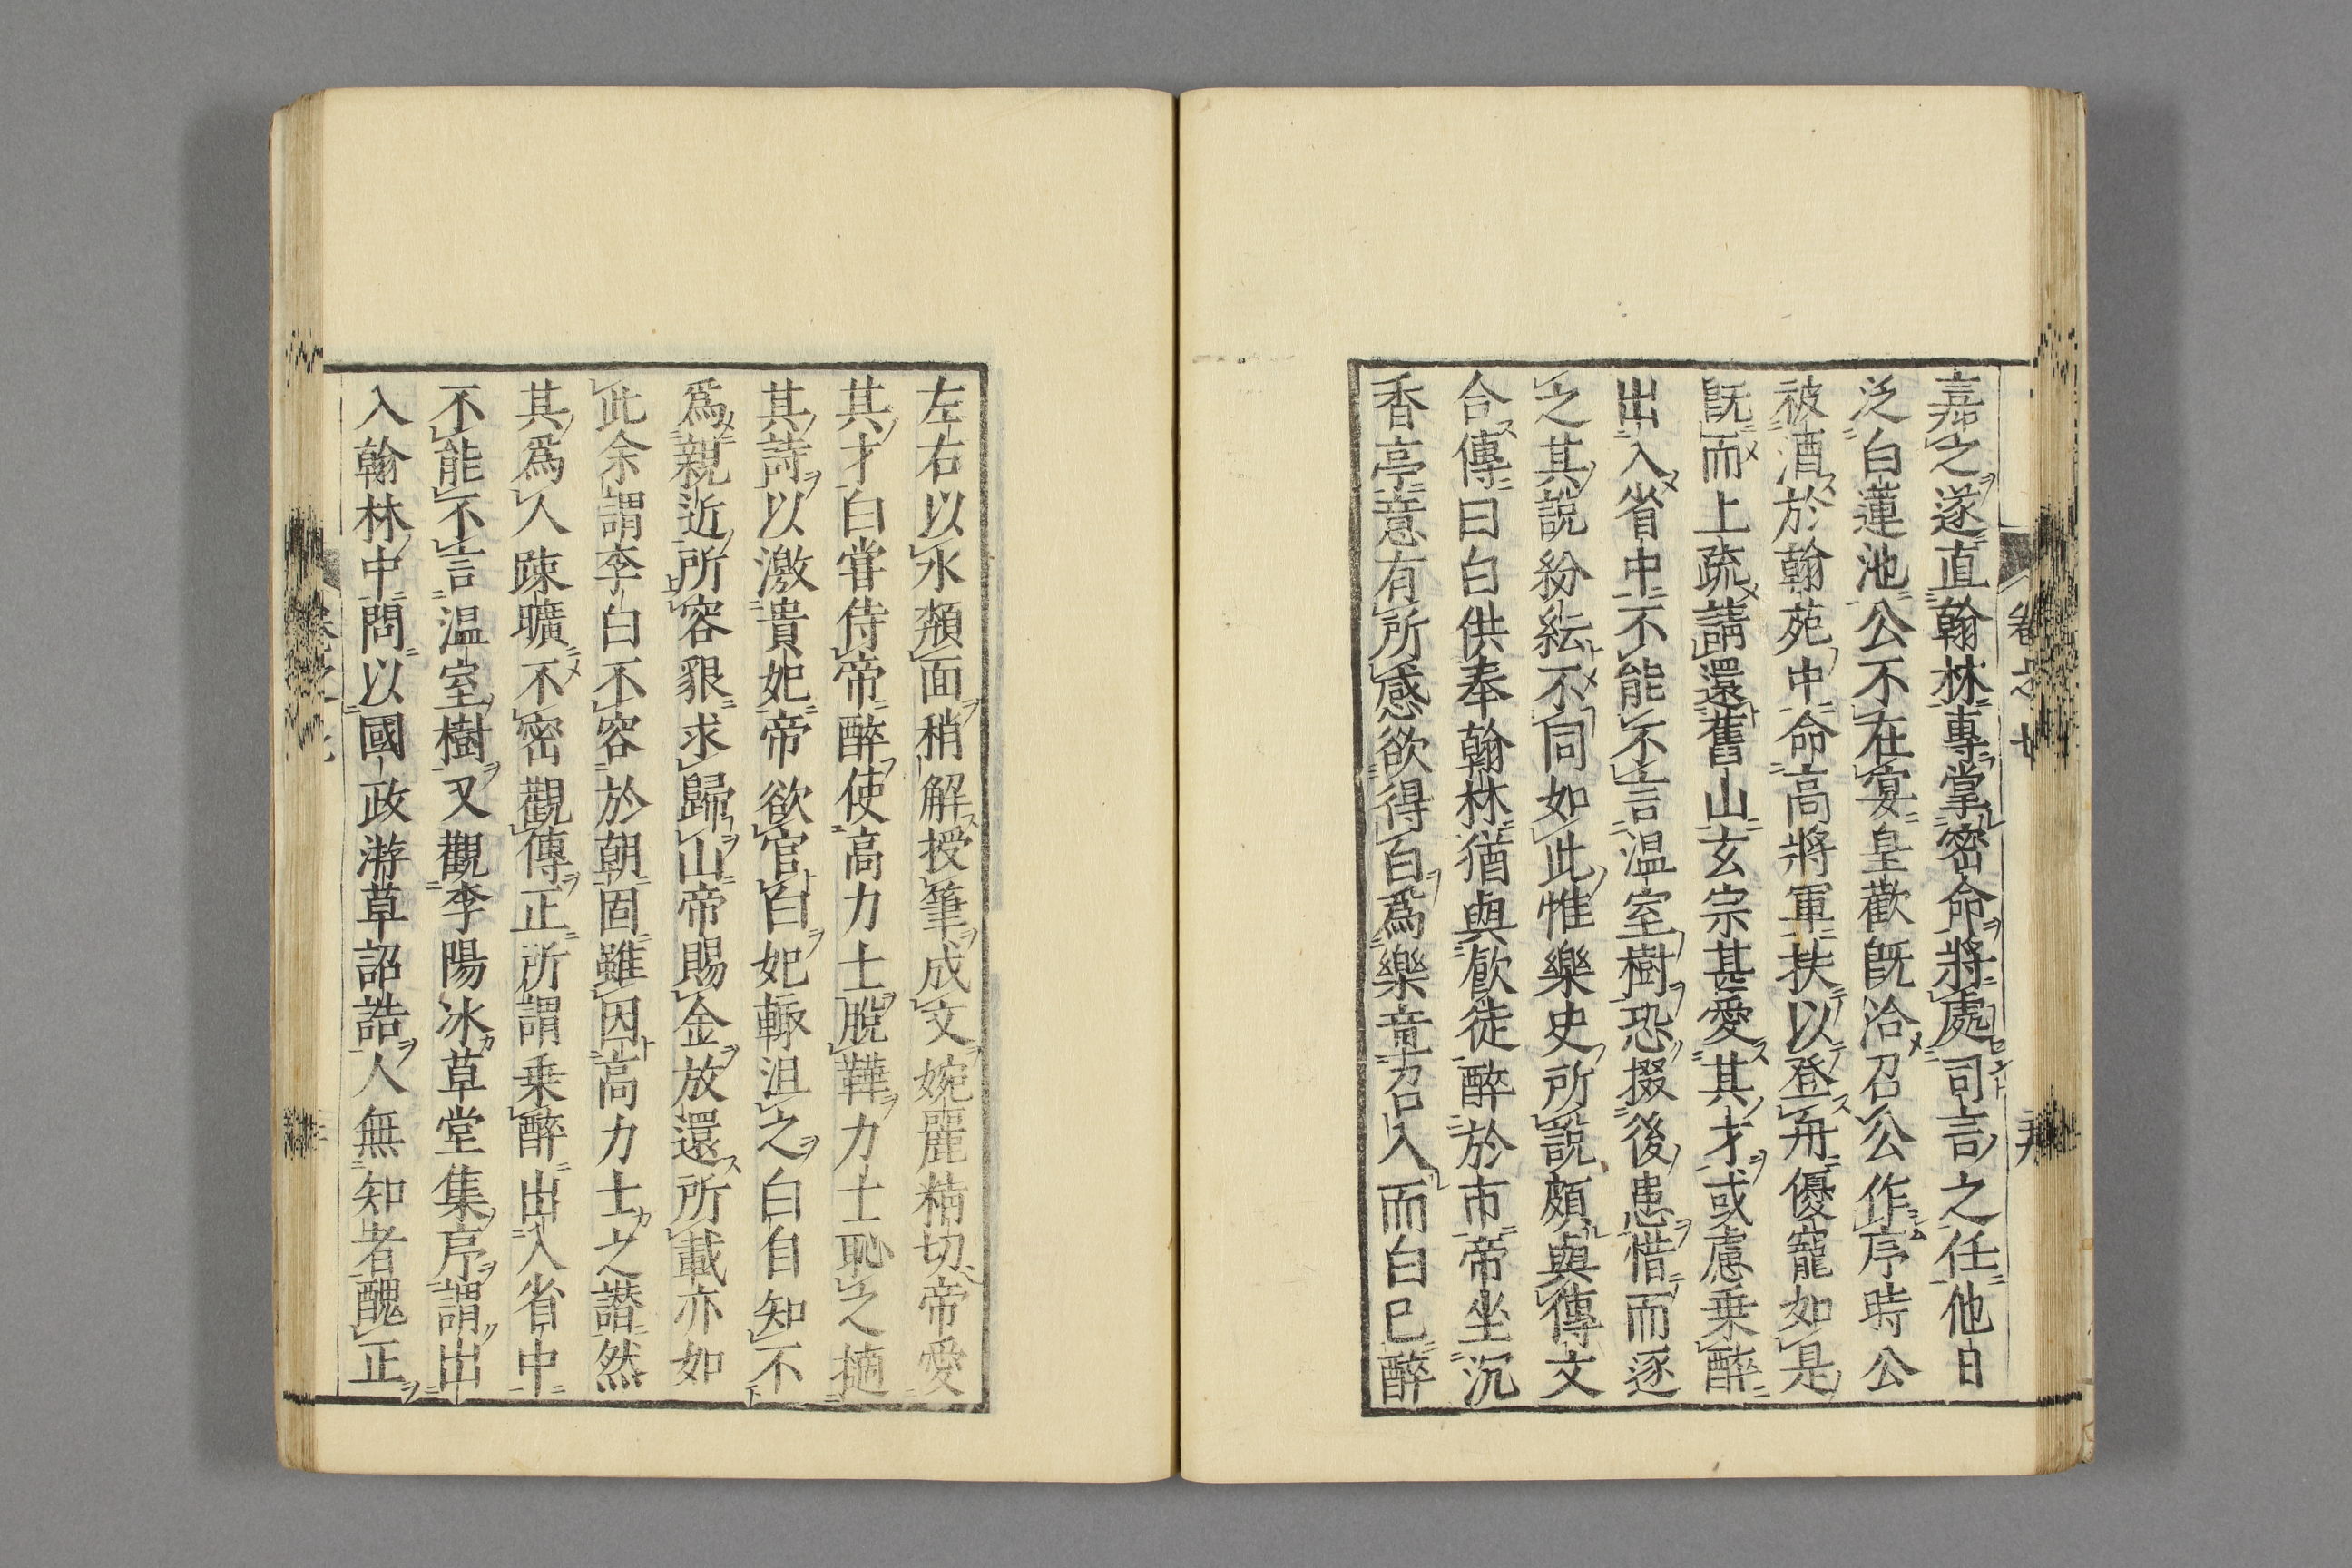 嘉之遂直翰林專掌密命將處司言之任他日
泛白蓮池公不在宴皇歡旣洽召公作序時公
被酒於翰苑中命高將軍扶以登舟優寵如是
旣而上疏請還舊山玄宗甚愛其才或慮乗醉
出入省中不能不言温室樹恐掇後患惜而逐
之其說紛紜不同如此惟樂史所說頗與傳文
合傳曰白供奉翰林猶與飮徒醉於市帝坐沉
香亭意有所感欲得白爲樂章召入而白已醉
左右以水頮面稍解授筆成文婉麗精切帝愛
其才白嘗侍帝醉使高力士脫鞾力士恥之擿
其詩以激貴妃帝欲官白妃輙沮之白自知不
爲親近所容懇求歸山帝賜金放還所載亦如
此余謂李白不容於朝固雖因高力士之譖然
其爲人踈曠不密觀傳正所謂乗醉出入省中
不能不言温室樹又觀李陽冰草堂集序謂出
入翰林中問以國政游草詔誥人無知者醜正